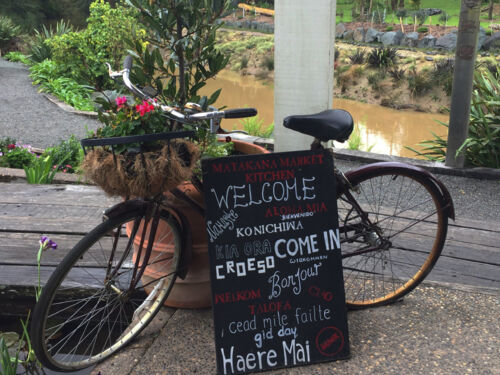 MATAKANA MARKET
KITCHEN
WELCOME
ALOHA MIA
Namaste
BIENVENIDO
KONICHIWA
KIA ORA COME IN
CROESO
WITKOMMEN
Bonjour
WELKOM
CIAO
TALOFA
cead mile failte
gid day
Haere Mai